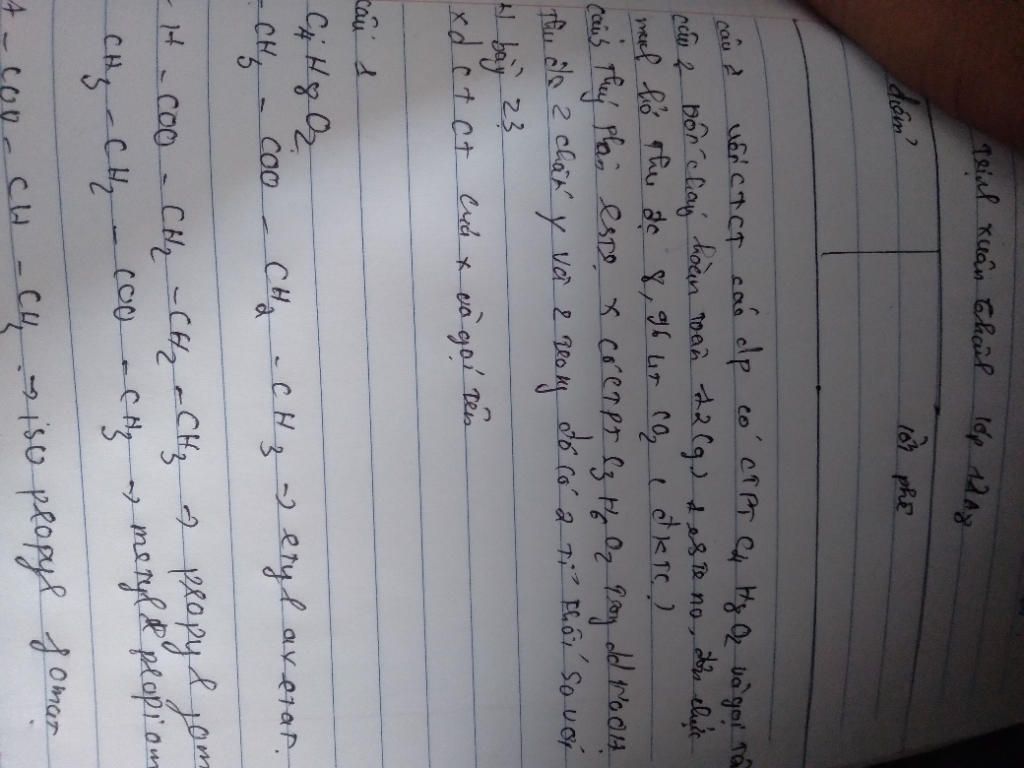 Trịnh xuân thành lớp 12A8
điểm, lời phê
câu 1 viết CTCT các đp có CTPT C4 H8O2 và gọi tê
câu 2 đốt cháy hoàn toàn 12(g) 1 este no, đơn chức
mạch hở thu đc 8,96 lit CO2 ( đktc)
câu3 thủ phân este x có CTPT C3 H6 O2 trong dd NaOH
thu đc 2 chất y và z trong đó có z tỉ khối so với
H bằng 23
xđ ct ct của x và gọi tên
câu 1
C4H8O2
- CH3 - COO - CH2 - CH3 → etyl axetat.
- H - COO - CH2 - CH2 - CH3 → propyl fom
CH3 - CH2 - COO - CH3 → metyl propion
- COO - CH - CH3 → iso propyl fomat.